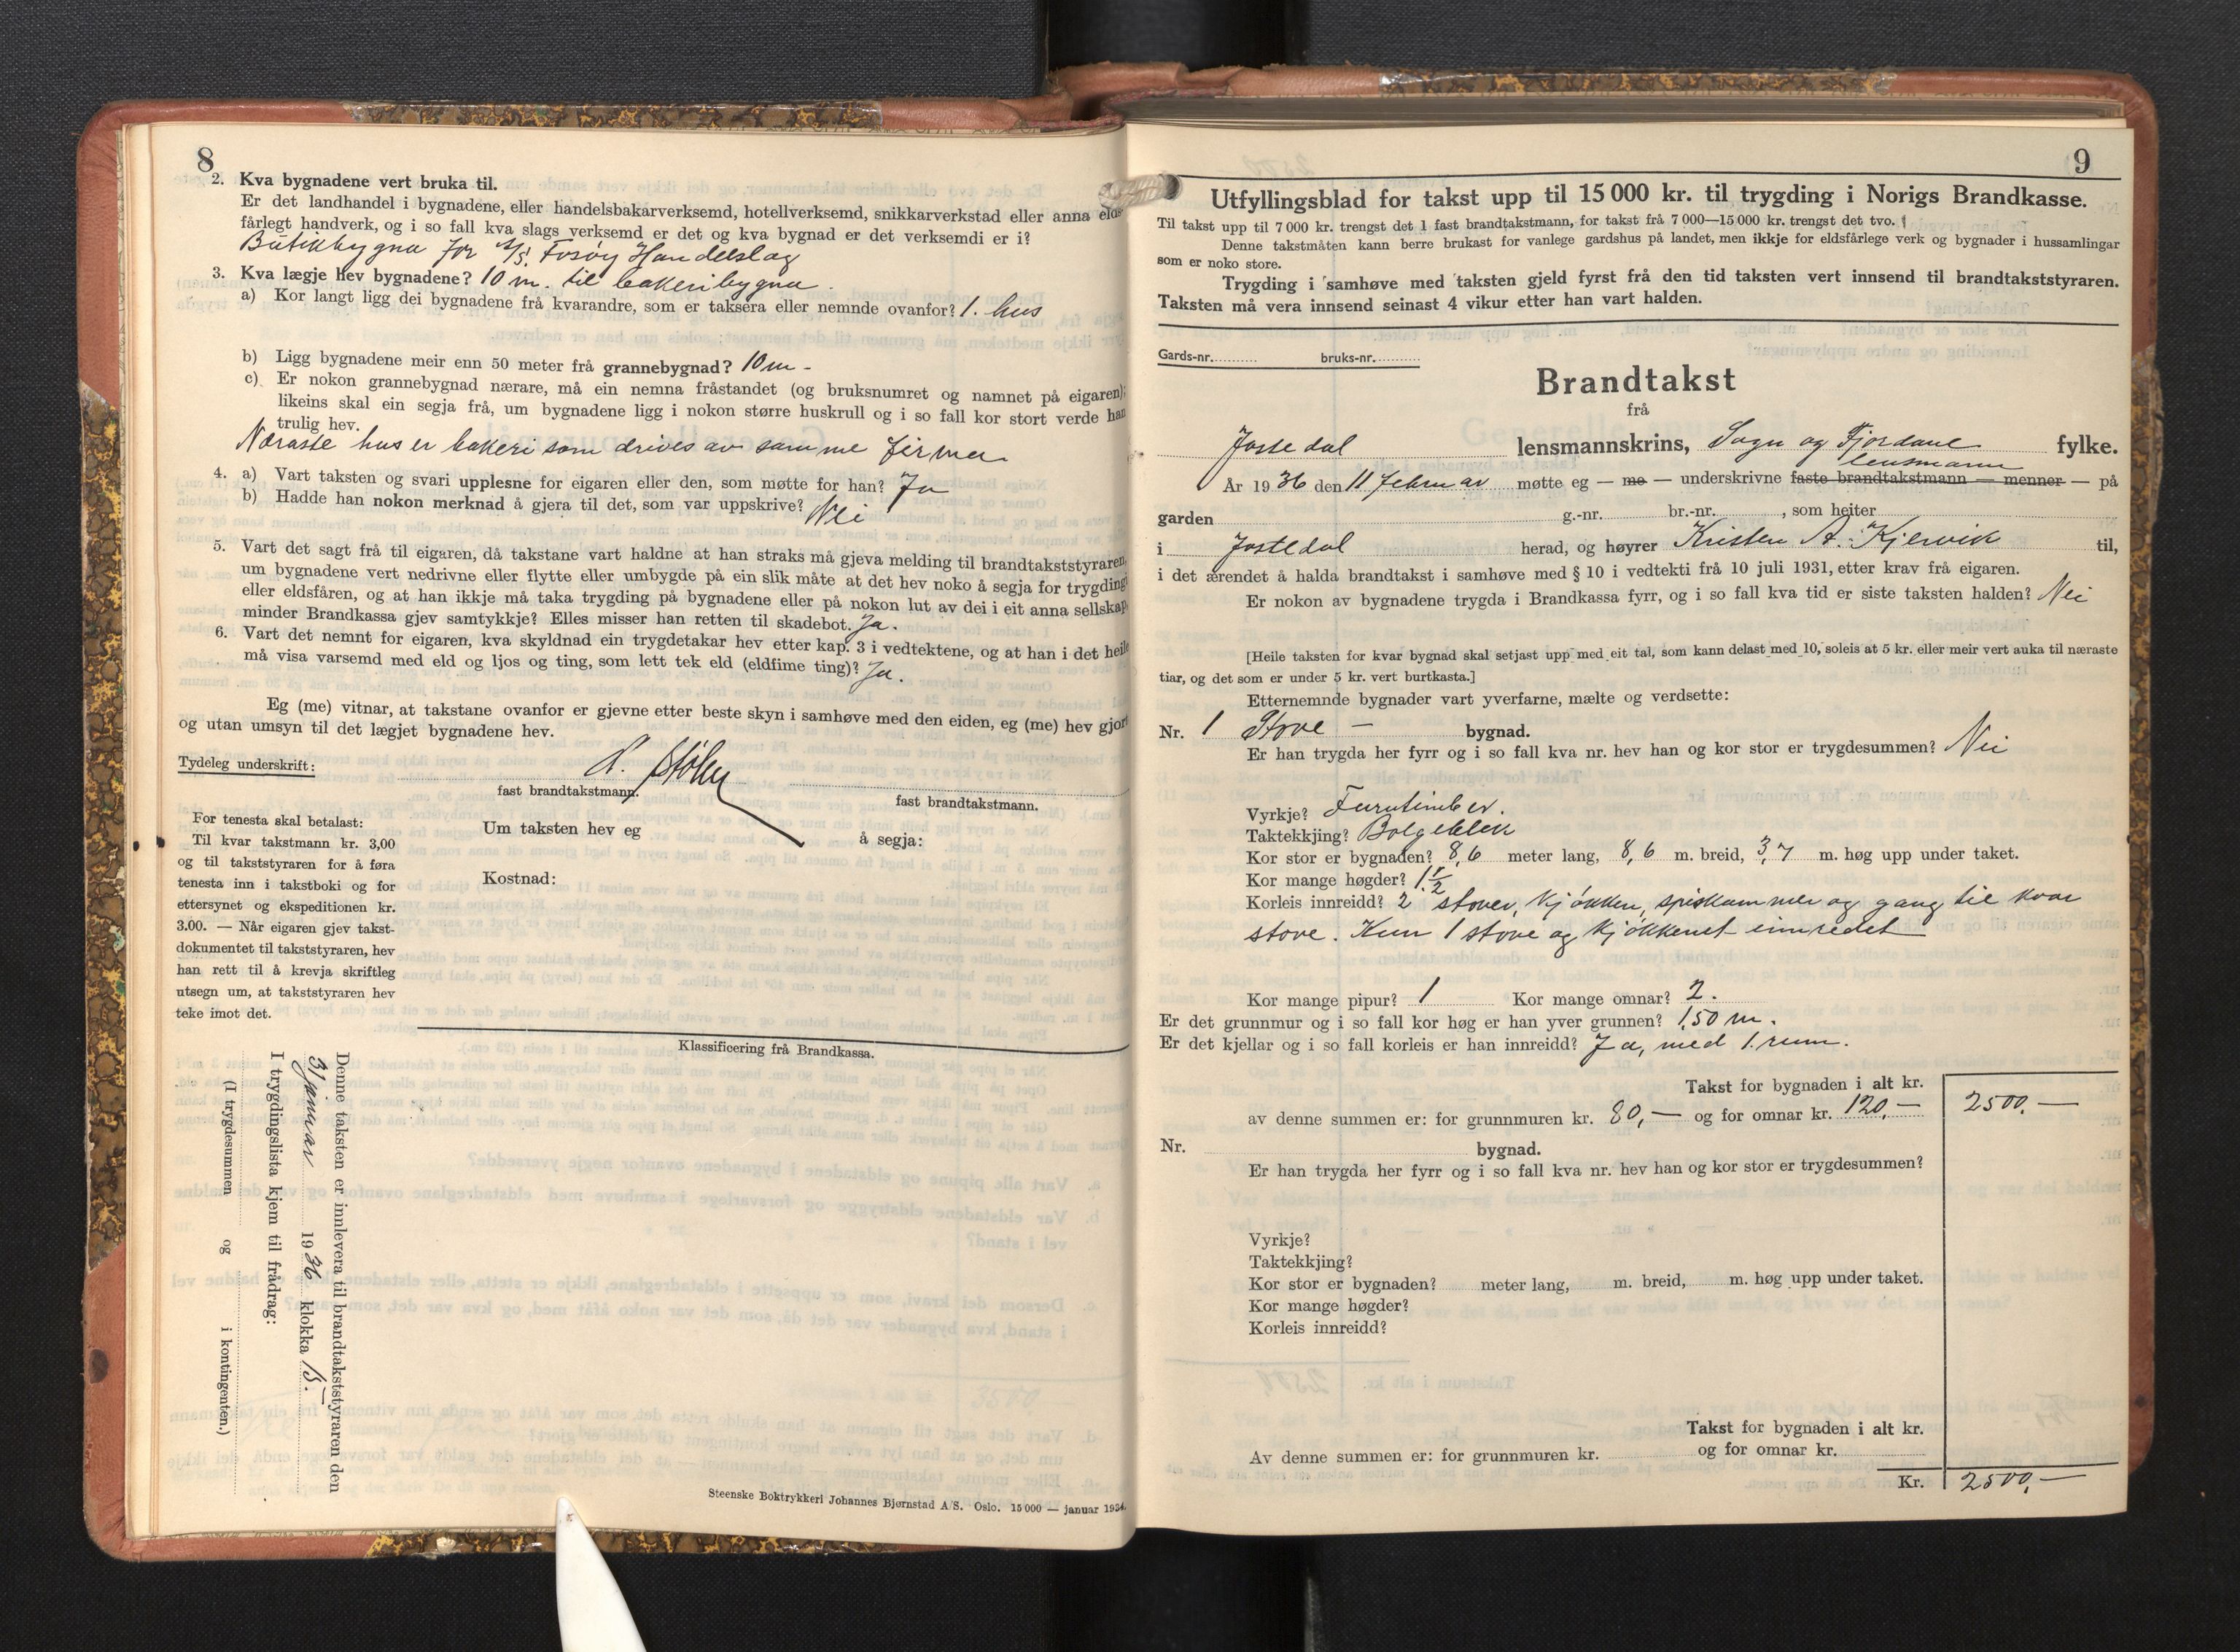 8
2. Kva bygnadene vert bruka til.
Er det landhandel i bygnadene, eller handelsbakarverksemd, hotellverksemd, snikkarverkstad eller anna elds-
fårlegt handverk, og i so fall kva slags verksemd er det og kva bygnad er det verksemdi er i?
Butikkbygna for A/S. Fosøy Handelslag
3. Kva lægje hev bygnadene? 10 m. til bakeribygna.
a) Kor langt ligg dei bygnadene frå kvarandre, som er taksera eller nemnde ovanfor? 1. hus
b) Ligg bygnadene meir enn 50 meter frå grannebygnad? 10 m -
c) Er nokon grannebygnad nærare, må ein nemna fråstandet (og bruksnumret og namnet på eigaren);
likeins skal ein segja frå, um bygnadene ligg i nokon større huskrull og i so fall kor stort verde han
trulig hev.
Næraste hus er bakeri som drives av samme firma
4. a) Vart taksten og svari upplesne for eigaren eller den, som møtte for han? Ja
b) Hadde han nokon merknad å gjera til det, som var uppskrive? Nei
5. Vart det sagt frå til eigaren, då takstane vart haldne at han straks må gjeva melding til brandtakststyraren,
um bygnadene vert nedrivne eller flytte eller umbygde på ein slik måte at det hev noko å segja for trygding
eller eldsfåren, og at han ikkje må taka trygding på bygnadene eller på nokon lut av dei i eit anna sellskap,
minder Brandkassa gjev samtykkje? Elles misser han retten til skadebot. Ja.
6. Vart det nemnt for eigaren, kva skyldnad ein trygdetakar hev etter kap. 3 i vedtektene, og at han i det heile
må visa varsemd med eld og ljos og ting, som lett tek eld (eldfime ting)? Ja.
Eg (me) vitnar, at takstane ovanfor er gjevne etter beste skyn i samhøve med den eiden, eg (me) hev gjort
og utan umsyn til det lægjet bygnadene hev.
Tydeleg underskrift:
fast brandtakstmann.
fast brandtakstmann.
For tenesta skal betalast:
Til kvar takstmann kr. 3,00
og til takststyraren for å føra
tenesta inn i takstboki og for
ettersynet og ekspeditionen kr.
3.00. — Når eigaren gjev takst-
dokumentet til takststyraren, hev
han rett til å krevja skriftleg
utsegn um, at takststyraren hev
teke imot det.
Um taksten hev eg å segja:
Kostnad:
Klassificering frå Brandkassa.
Denne taksten er innlevera til brandtakststyraren den
31 januar 1936 klokka 15.-
I trygdingslista kjem til frådrag:
(I trygdesummen og i kontingenten.)
Steenske Boktrykkeri Johannes Bjørnstad A/S. Oslo. 15 000 — januar 1934.
9
Utfyllingsblad for takst upp til 15 000 kr. til trygding i Norigs Brandkasse.
Til takst upp til 7 000 kr. trengst det 1 fast brandtakstmann, for takst frå 7 000—15 000 kr. trengst det tvo.
Denne takstmåten kann berre brukast for vanlege gardshus på landet, men ikkje for eldsfårlege verk og bygnader i hussamlingar
som er noko store.
Trygding i samhøve med taksten gjeld fyrst frå den tid taksten vert innsend til brandtakststyraren.
Taksten må vera innsend seinast 4 vikur etter han vart halden.
Gards-nr. bruks-nr.
Brandtakst
frå
Jostedal lensmannskrins, Sogn og Fjordane fylke.
lensmann
År 1936 den 11 februar møtte eg — me — underskrivne faste brandtakstmann — menner — på
garden g.-nr. br.-nr. , som heiter
i Jostedal herad, og høyrer Kristen A. Kjervik til,
i det ærendet å halda brandtakst i samhøve med § 10 i vedtekti frå 10 juli 1931, etter krav frå eigaren.
Er nokon av bygnadene trygda i Brandkassa fyrr, og i so fall kva tid er siste taksten halden? Nei
[Heile taksten for kvar bygnad skal setjast upp med eit tal, som kann delast med 10, soleis at 5 kr. eller meir vert auka til næraste
tiar, og det som er under 5 kr. vert burtkasta.]
Etternemnde bygnader vart yverfarne, mælte og verdsette:
Nr. 1 Stove — bygnad.
Er han trygda her fyrr og i so fall kva nr. hev han og kor stor er trygdesummen? Nei
Vyrkje? Furutimber.
Taktekkjing? Bølgeblik
Kor stor er bygnaden? 8,6 meter lang, 8,6 m. breid, 3,7 m. høg upp under taket.
Kor mange høgder? 1 1/2
Korleis innreidd? 2 stover, kjøkken, spiskammer og gang til kvar
stove. Kun 1 stove og kjøkkenet innredet
Kor mange pipur? 1 Kor mange omnar? 2.
Er det grunnmur og i so fall kor høg er han yver grunnen? 1,50 m.
Er det kjellar og i so fall korleis er han innreidd? Ja, med 1. rum.
Takst for bygnaden i alt kr. 2500,—
av denne summen er: for grunnmuren kr. 80,— og for omnar kr. 120,—
Nr. bygnad.
Er han trygda her fyrr og i so fall kva nr. hev han og kor stor er trygdesummen?
Vyrkje?
Taktekkjing?
Kor stor er bygnaden? meter lang, m. breid, m. høg upp under taket.
Kor mange høgder?
Korleis innreidd?
Takst for bygnaden i alt kr.
Av denne summen er: for grunnmuren kr. og for omnar kr.
Kr. 2500,—